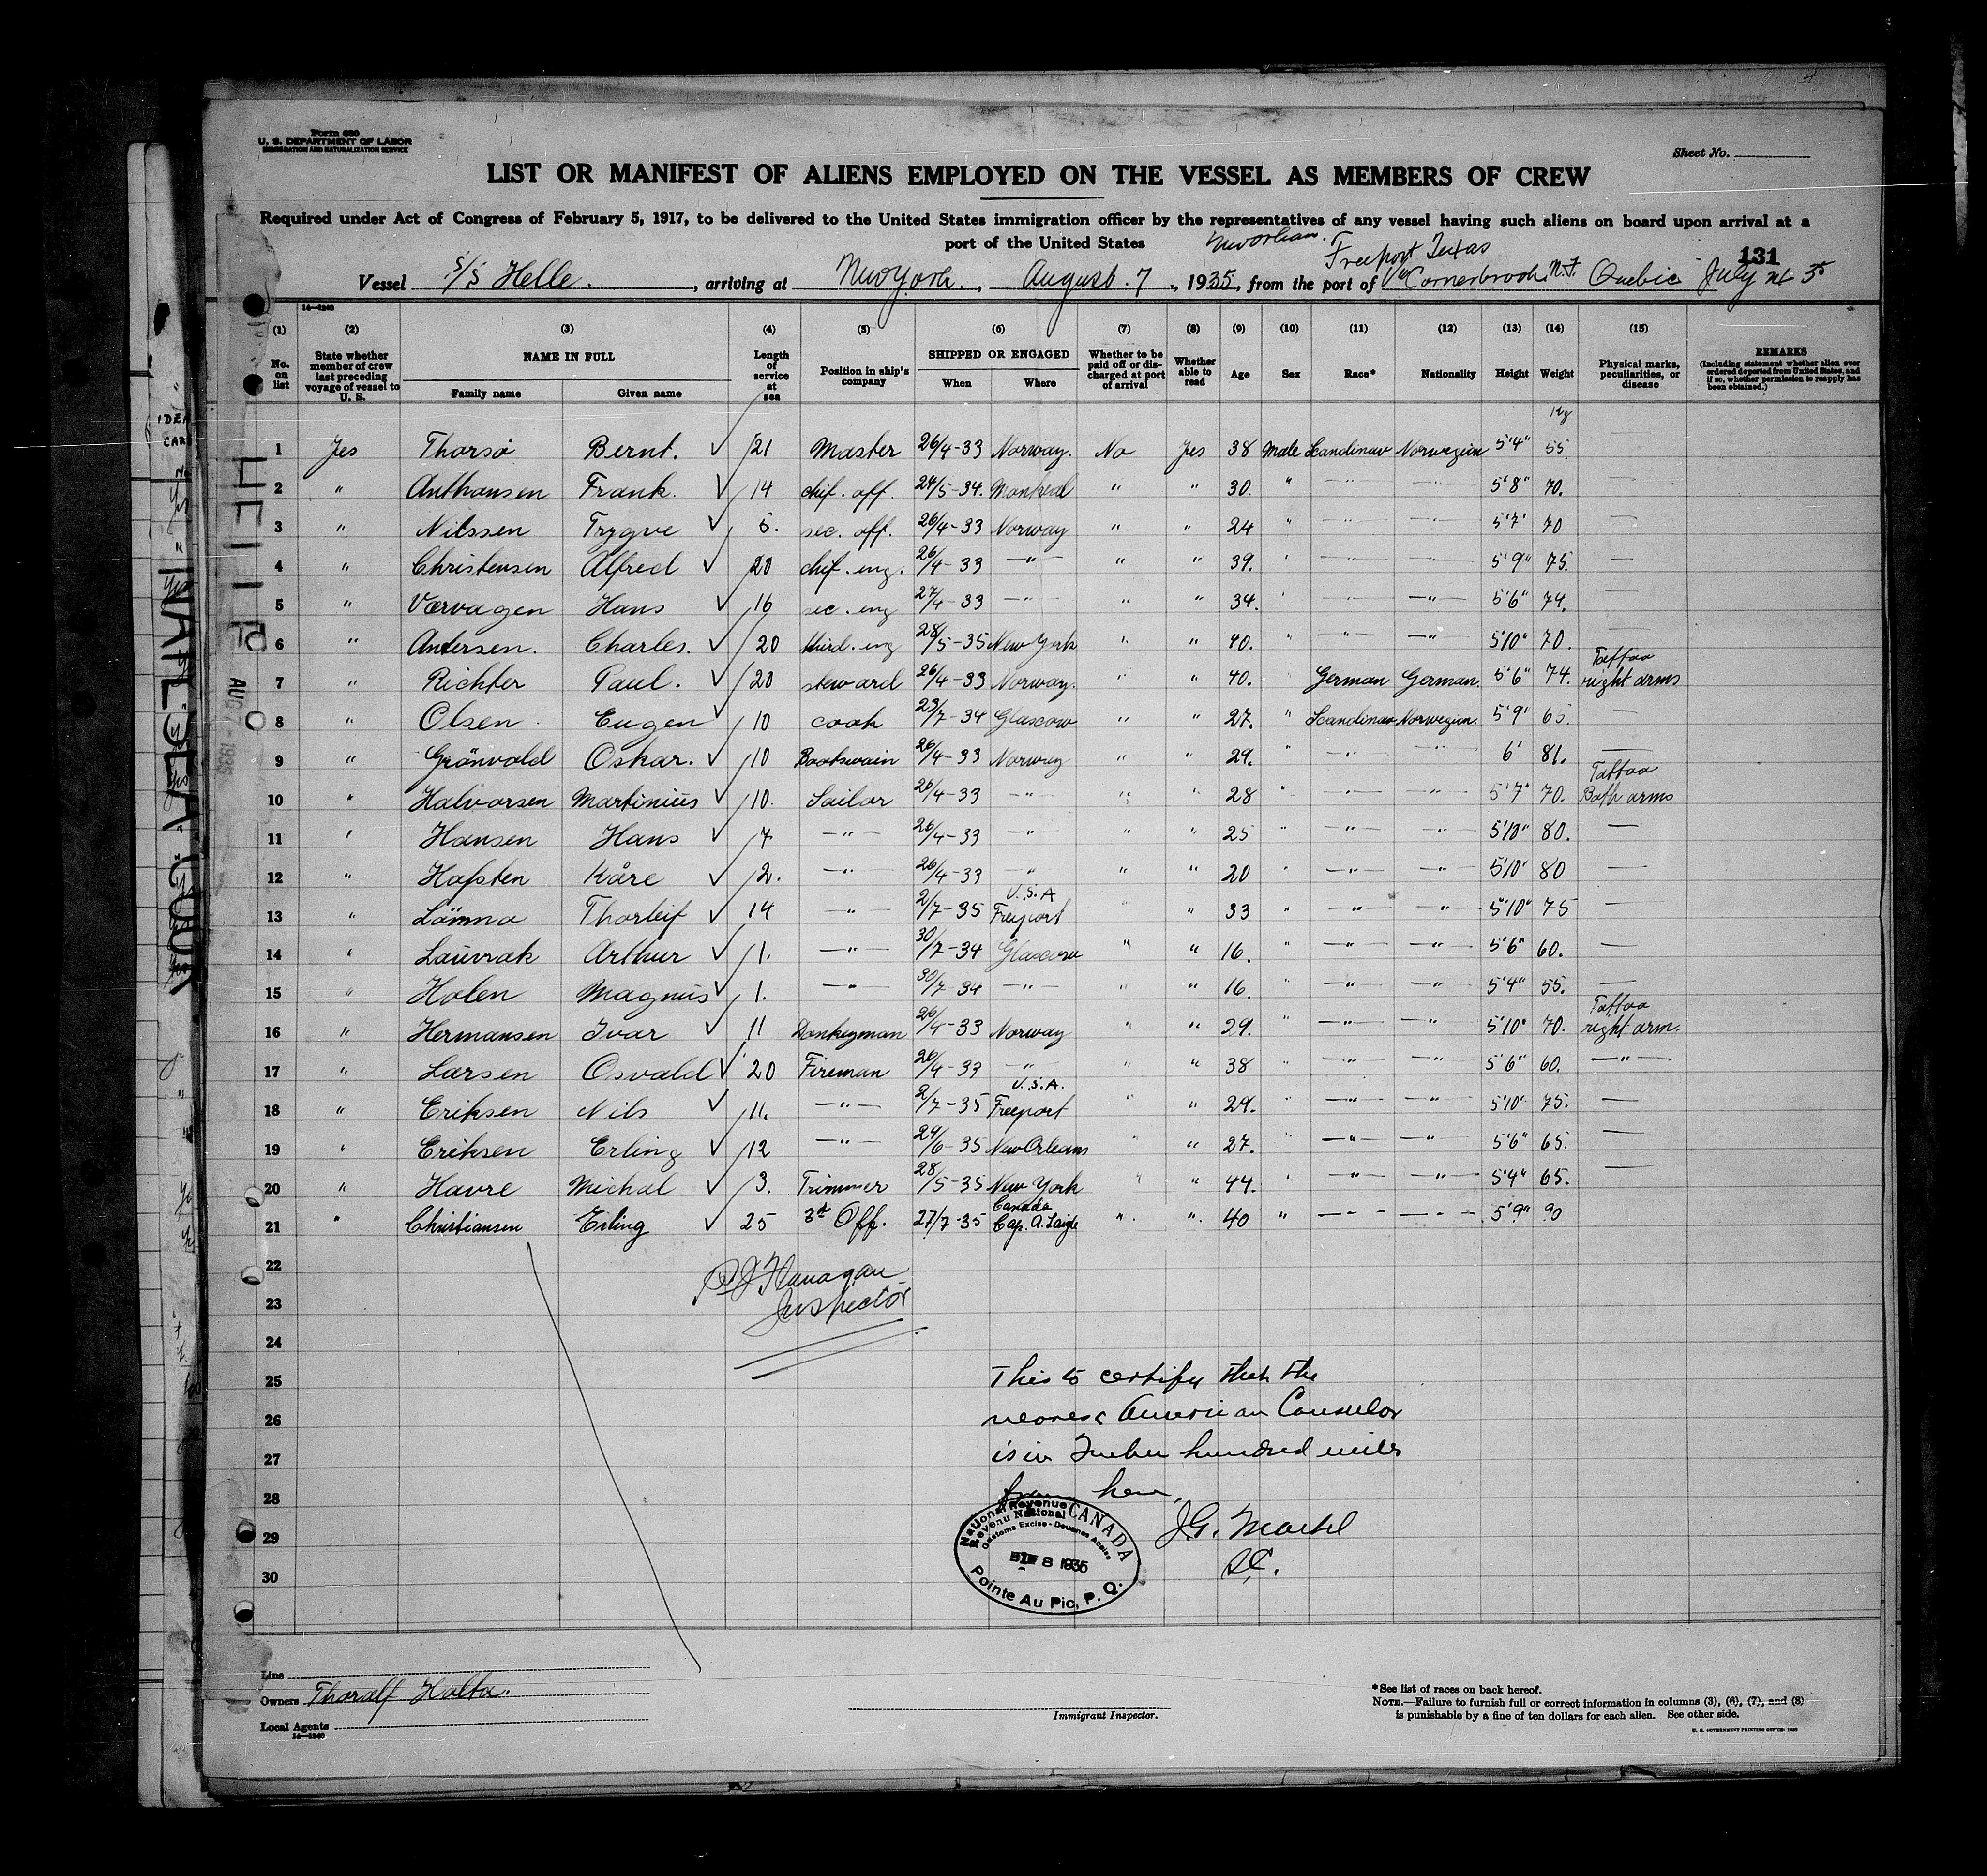 Form 680
U. S. DEPARTMENT OF LABOR
IMMIGRATION AND NATURALIZATION SERVICE
Sheet No.
LIST OR MANIFEST OF ALIENS EMPLOYED ON THE VESSEL AS MEMBERS OF CREW
Required under Act of Congress of February 5, 1917, to be delivered to the United States immigration officer by the representatives of any vessel having such aliens on board upon arrival at a
port of the United States
Freeport Texas
131
Vessel S/S Helle. , arriving at New York. , August. 7 , 1935, from the port of Cornerbrook N.F. Quebic July
14-1240
(1) (2) (3) (4) (5) (6) (7) (8) (9) (10) (11) (12) (13) (14) (15)
No. on list State whether member of crew last preceding voyage of vessel to U. S. NAME IN FULL Family name Given name Length of service at sea Position in ship's company SHIPPED OR ENGAGED When Where Whether to be paid off or discharged at port of arrival Whether able to read Age Sex Race* Nationality Height Weight Physical marks, peculiarities, or disease REMARKS (Including statement whether alien ever ordered deported from United States, and if so, whether permission to reapply has been obtained.)
Kg
1 Yes Thorsö Bernt. 21 Master 26/4-33 Norway. No Yes 38 Male Scandinav Norwegian 5'4" 55. —
2 " Anthonsen Frank. 14 chif. off. 24/5-34. Montreal " " 30. " —"— —"— 5'8" 70. —
3 " Nilssen Trygve 5. sec. off. 26/4-33 Norway " " 24 " —"— —"— 5'7" 70 —
4 " Christensen Alfred 20 chif. eng. 26/4-33 —"— " " 39. " —"— —"— 5'9" 75. —
5 " Værvagen Hans 16 sec. eng 27/4-33 —"— " " 34. " —"— —"— 5'6" 74. —
6 " Andersen. Charles. 20 third. eng 28/5-35 New York " " 40. " —"— —"— 5'10" 70. —
7 " Richter Paul. 20 steward 26/4-33 Norway. " " 40. " German German. 5'6" 74. Tattoo right arms
8 " Olsen. Eugen 10 cook 23/7-34 Glascow " " 27. " Scandinav Norwegian. 5'9" 65. —
9 " Grönvold Oskar. 10 Bootswain 26/4-33 Norway " " 29. " —"— —"— 6' 81. —
10 " Halvorsen Martinius 10. Sailor 26/4-33 —"— " " 28 " —"— —"— 5'7" 70. Tattoo Both arms
11 " Hansen Hans 7 —"— 26/4-33 —"— " " 25 " —"— —"— 5'10" 80. —
12 " Hofsten Kåre 2. —"— 26/4-33 —"— " " 20 " —"— —"— 5'10" 80 —
13 " Lönno Thorleif 14 —"— 2/7-35 U.S.A Freeport " " 33 " —"— —"— 5'10" 75 —
14 " Lauvrak Arthur 1. —"— 30/7-34 Glascow " " 16. " —"— —"— 5'6" 60. —
15 " Holen Magnus 1. —"— 30/7-34 —"— " " 16. " —"— —"— 5'4" 55. —
16 " Hermansen Ivar 11 Donkeyman 26/4-33 Norway " " 29. " —"— —"— 5'10" 70. Tattoo right arm.
17 " Larsen Osvald 20 Fireman 26/4-33 —"— " " 38 " —"— —"— 5'6" 60. —"—
18 " Eriksen Nils 11. —"— 2/7-35 U.S.A. Freeport " " 29. " —"— —"— 5'10" 75. —
19 " Eriksen Erling 12 —"— 24/6-35 New Orleans " " 27. " —"— —"— 5'6" 65. —
20 " Havre Michal 3. Trimmer 28/5-35 New York " " 44. " —"— —"— 5'4" 65. —
21 " Christiansen Erling 25 3d Off. 27/7-35 Canada Cap. A. Laigle " " 40 " —"— —"— 5'9" 90
22
23
24
25
26
27
28
29
30
P J Flanagan
Inspector
This to certify that the
nearest American Consulor
is in hundred miles
from here.
J.G. Martel
National Revenue CANADA
Revenu National
Customs Excise - Douanes Accise
8 1935
Pointe Au Pic, P. Q.
AUG 7 - 1935
Line
Owners Thoralf Holta.
Local Agents
14-1240
Immigrant Inspector.
*See list of races on back hereof.
NOTE.—Failure to furnish full or correct information in columns (3), (6), (7), and (8)
is punishable by a fine of ten dollars for each alien. See other side.